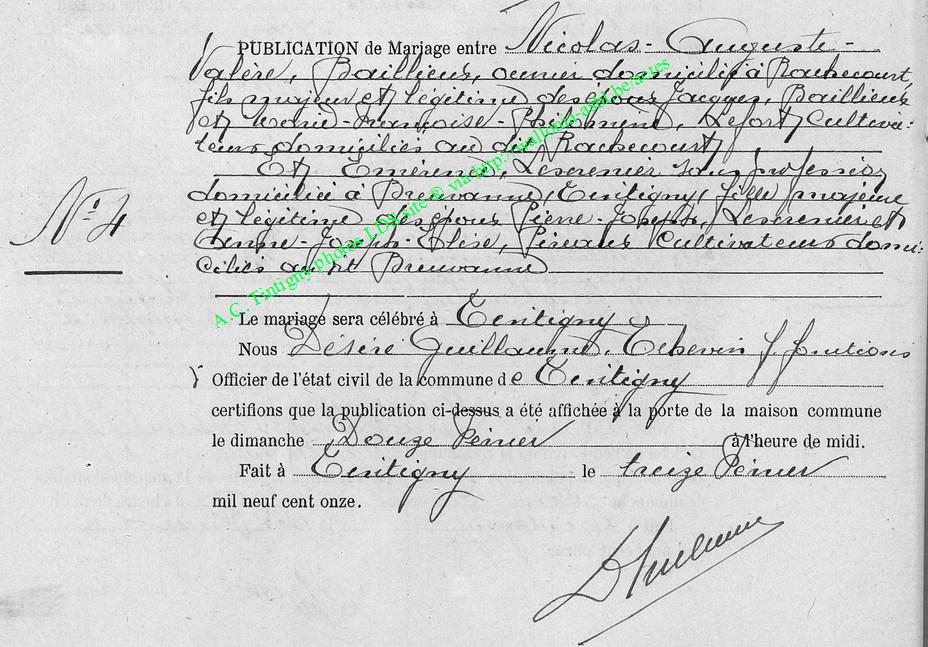 PUBLICATION de Mariage entre Nicolas-Auguste-
Valère, Baillieux, ouvrier domicilié à Rachecourt,
fils majeur et légitime des époux Jacques, Baillieux
et Marie-Françoise-Philomène, Lefort, Cultiva-
teurs domiciliés au dit Rachecourt
Et Emérence, Lescrenier sans profession
domiciliée à Breuvanne, Tintigny, fille majeure
et légitime des époux Pierre-Joseph, Lescrenier et
Anne-Joseph-Elise, Cultivateurs domi-
ciliés au dit Breuvanne
N° 4
Le mariage sera célébré à Tintigny
Nous Désiré Guillaume, Echevin f. fonctions
Officier de l'état civil de la commune de Tintigny
certifions que la publication ci-dessus a été affichée à la porte de la maison commune
le dimanche Douze à l'heure de midi.
Fait à Tintigny le treize
mil neuf cent onze.
DGuillaume
A.C. Tintigny photos LDA site ® via http://wallonia-asbl.be/actes